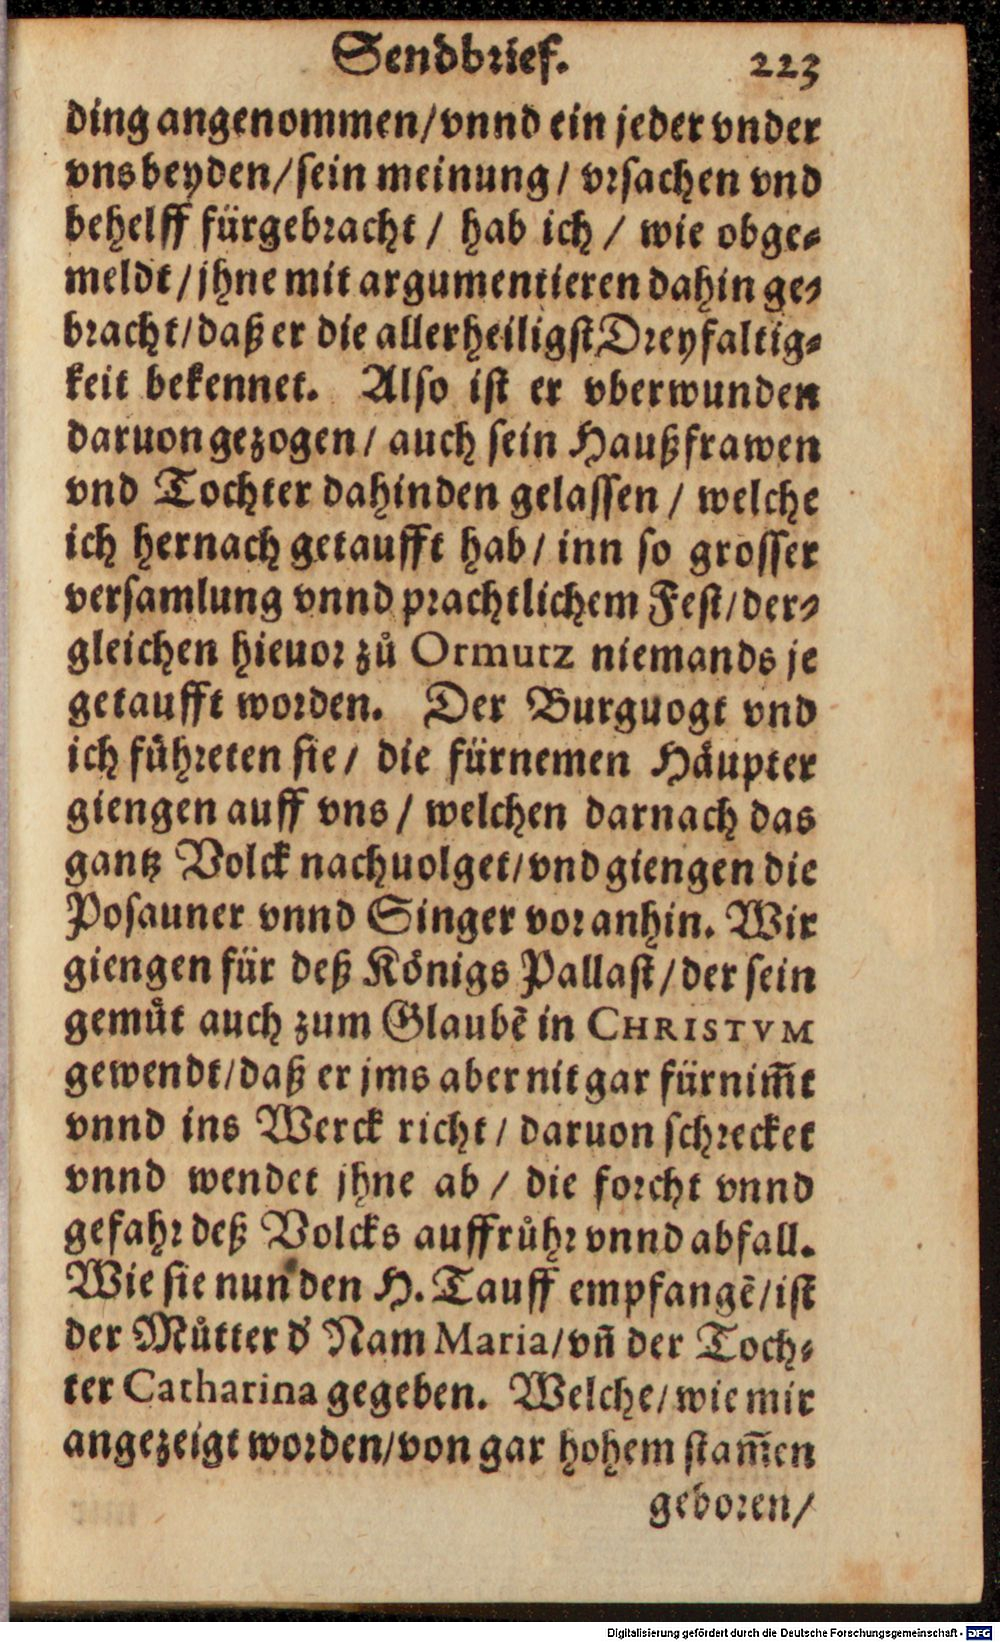 Sendbrief. 223
ding angenommen/vnnd ein jeder vnder
vns beyden/sein meinung/ vrsachen vnd
behelff fürgebracht/ hab ich/ wie obge-
meldt/jhne mit argumentieren dahin ge-
bracht/daß er die allerheiligst Dreyfaltig-
keit bekennet. Also ist er vberwunden
daruon gezogen/ auch sein Haußfrawen
vnd Tochter dahinden gelassen/ welche
ich hernach getaufft hab/ inn so grosser
versamlung vnnd prachtlichem Fest/der-
gleichen hieuor zuͦ Ormutz niemands je
getaufft worden. Der Burguogt vnd
ich fuͤhreten sie/ die fürnemen Haͤupter
giengen auff vns/ welchen darnach das
gantz Volck nachuolget/vnd giengen die
Posauner vnnd Singer voranhin. Wir
giengen für deß Koͤnigs Pallast/der sein
gemuͤt auch zum Glaubẽ in CHRISTVM
gewendt/daß er jms aber nit gar fürnim̃t
vnnd ins Werck richt/ daruon schrecket
vnnd wendet jhne ab/ die forcht vnnd
gefahr deß Volcks auffruͤhr vnnd abfall.
Wie sie nun den H. Tauff empfangẽ/ist
der Muͤtter d' Nam Maria/vñ der Toch-
ter Catharina gegeben. Welche/wie mir
angezeigt worden/von gar hohem stam̃en
geboren/
Digitalisierung gefördert durch die Deutsche Forschungsgemeinschaft - DFG